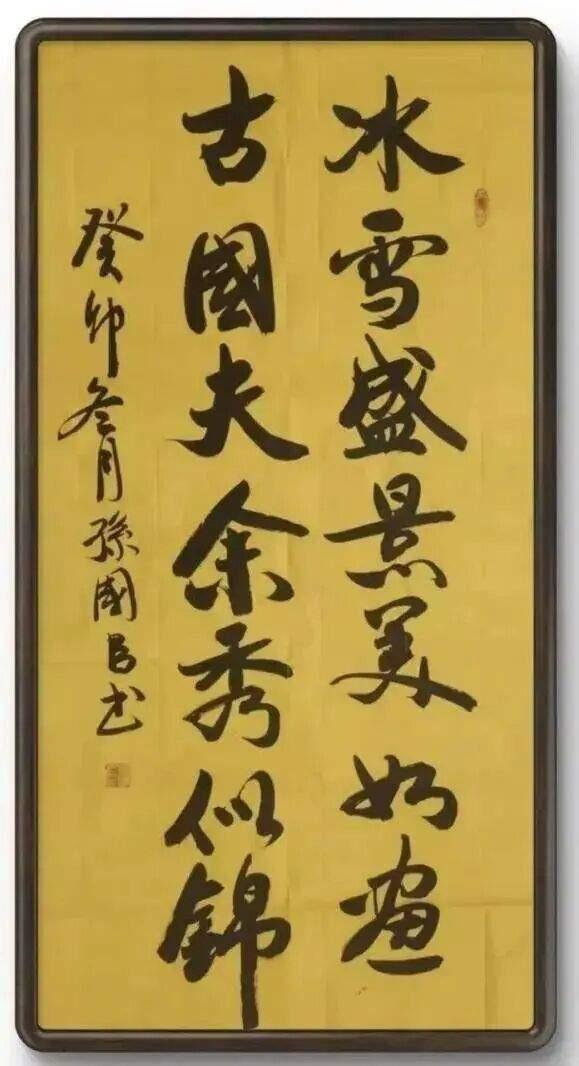 冰雪盛景美如画
古國夫余秀似錦
癸卯冬月孫國昌书